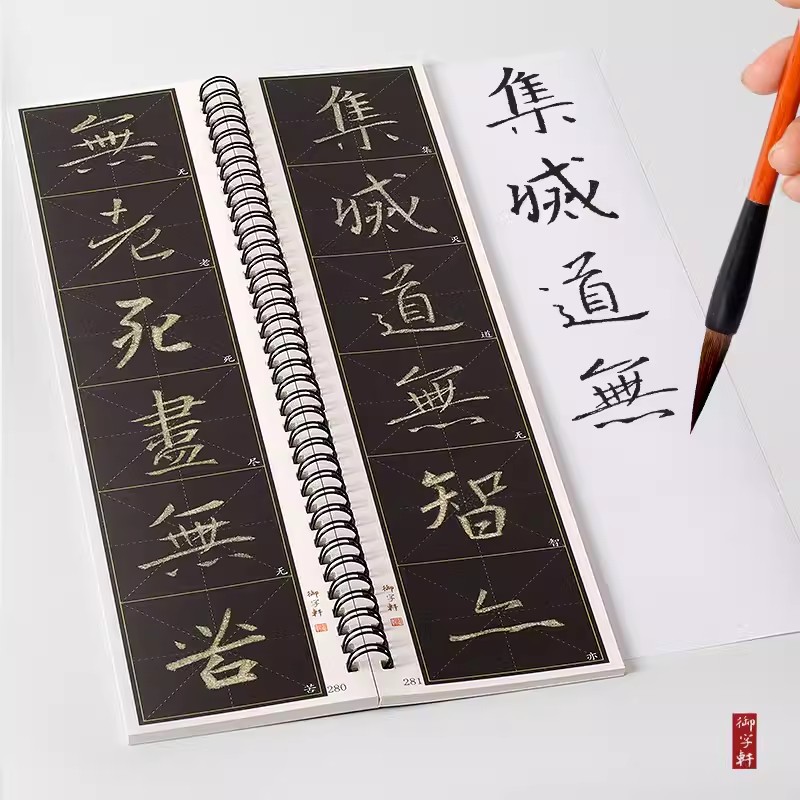 無老死盡無苦
无
老
死
尽
无
苦
280
御字軒
集滅道無智亦
集
灭
道
无
智
亦
281
御字軒
集滅道無
御字軒